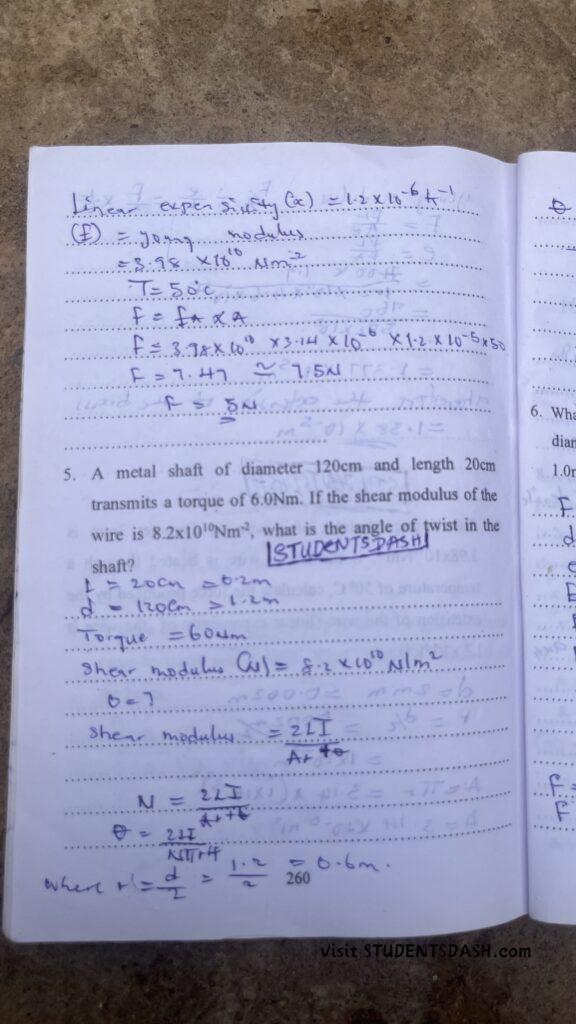 Linear expensivity (α) = 1.2 × 10⁻⁶ k⁻¹
(E) = young modulus
= 3.98 × 10¹⁰ Nm⁻²
T = 50°C
F = × A
F = 3.98×10¹⁰ × 3.14 × 10⁻⁶ × 1.2 × 10⁻⁵ × 50
F = 7.47 ≃ 7.5N
F = 5N
5. A metal shaft of diameter 120cm and length 20cm
transmits a torque of 6.0Nm. If the shear modulus of the
wire is 8.2x10¹⁰Nm⁻², what is the angle of twist in the
shaft?
STUDENTSDASH
l = 20cm = 0.2m
d = 120cm = 1.2m
Torque = 60Nm
Shear modulus (N) = 8.2 × 10¹⁰ N/m²
θ = ?
Shear modulus = 2LI
N = 2LI
θ = 2LI
where r = d/2 = 1.2/2 = 0.6m.
260
6. Wha
diam
1.0m
F
F =
F
Visit STUDENTSDASH.com